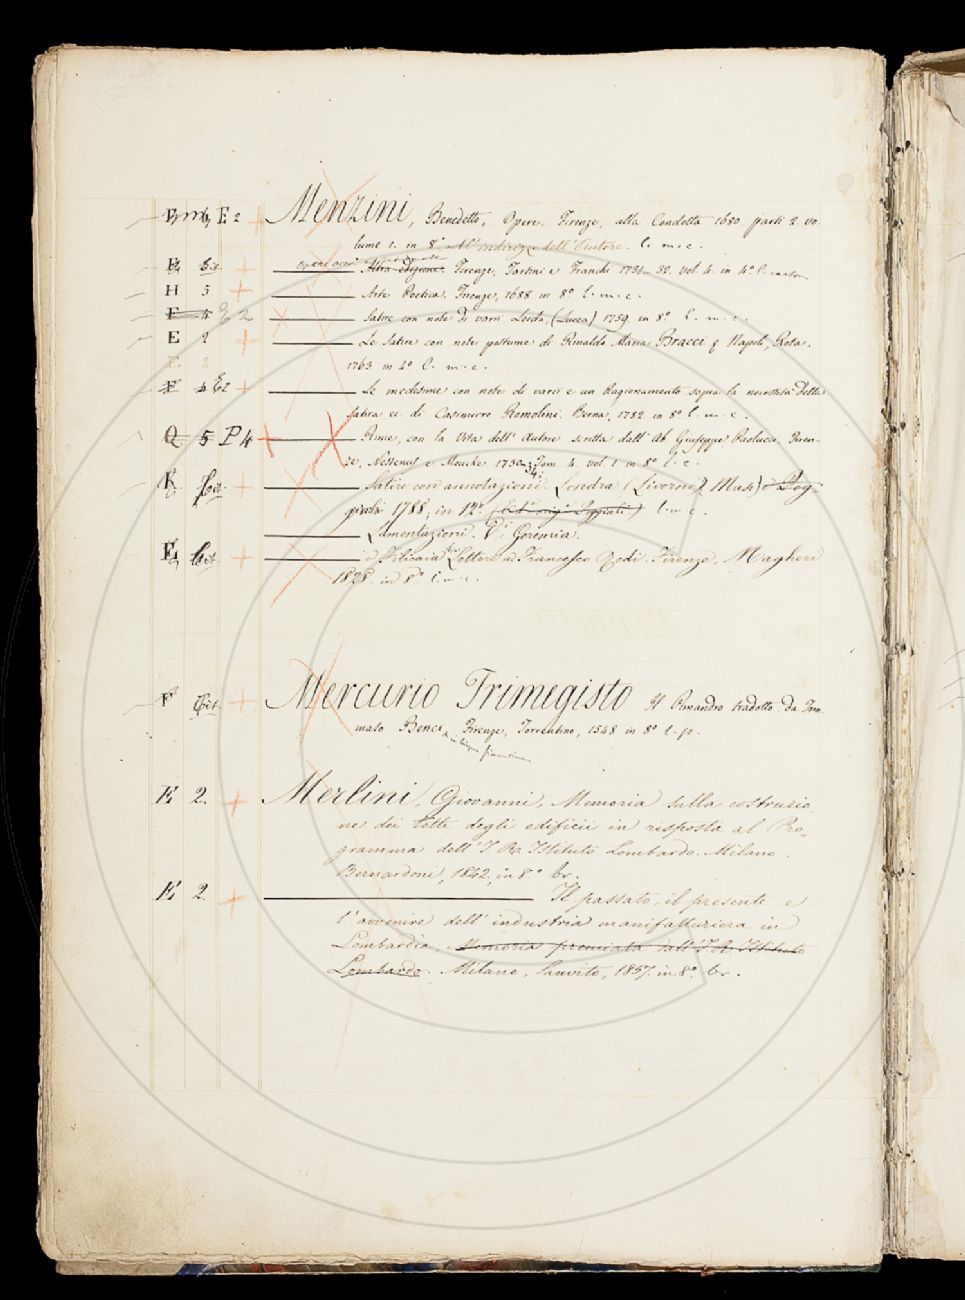 E 2 Menzini, Benedetto, Opere. Firenze, alla Condotta 1680 parti 2 vo-
lume 1. in 8° all'Indirizzo dell'Autore. l. m. c.
Altra edizione. Firenze, Tartini e Franchi 1731-32. vol. 4. in 4° l. carton
H 5 Arte Poetica. Firenze, 1688 in 8° l. m. c.
F 4 E 2 Satire con note di varii. Leida, (Lucca) 1759. in 8° l. m. c.
E 2 Le Satire con note postume di Rinaldo Maria Bracci. Napoli, Rota,
1763 in 4° l. m. c.
F 4 E2 Le medesime con note di varii e un Ragionamento sopra la necessità della
Satira ec. di Casimirro Romolini. Berna, 1782 in 8° l. m. c.
Q 5 P4 Rime, con la Vita dell'Autore scritta dall'Ab. Giuseppe Paolucci. Firen-
ze, Nestenus e Moucke 1730-34. Tom. 4. vol. 1. in 8° l. c.
Satire con annotazioni. Londra (Livorno, Masi) e Pog-
giali 1788, in 12° l. m c.
Lamentazioni. V. Geremia.
e Filicaia Lettere a Francesco Redi. Firenze, Magheri
1828. in 8° l. m. c.
F Mercurio Trimegisto Il Pimandro tradotto da Tom-
maso Benci in lingua fiorentina. Firenze, Torrentino, 1548 in 8° l. p.
E 2. Merlini, Giovanni, Memoria sulla costruzio
ne dei tetti degli edificii in risposta al Pro-
gramma dell'I. R. Istituto Lombardo. Milano.
Bernardoni, 1842, in 8.° br.
E 2 Il passato, il presente e
l'avvenire dell'industria manifatturiera in
Lombardia. Memoria premiata dall'I. R. Istituto
Lombardo. Milano, Sanvito, 1857. in 8° br.